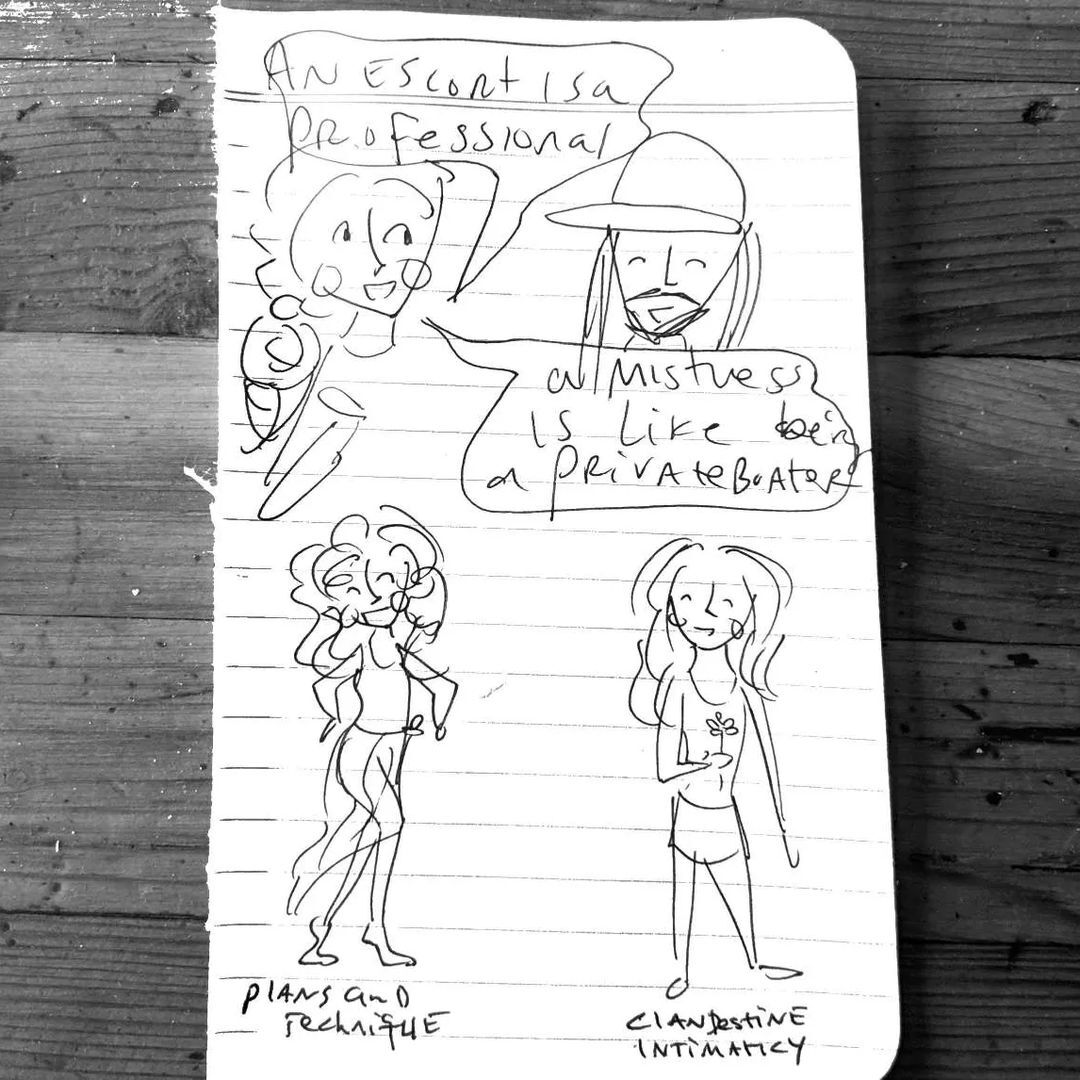 AN Escort is a
professional
a Mistress
is like bein
a PRIVATE BOATER
PLANS anD
technique
CLANDEstiNE
INTIMATICY